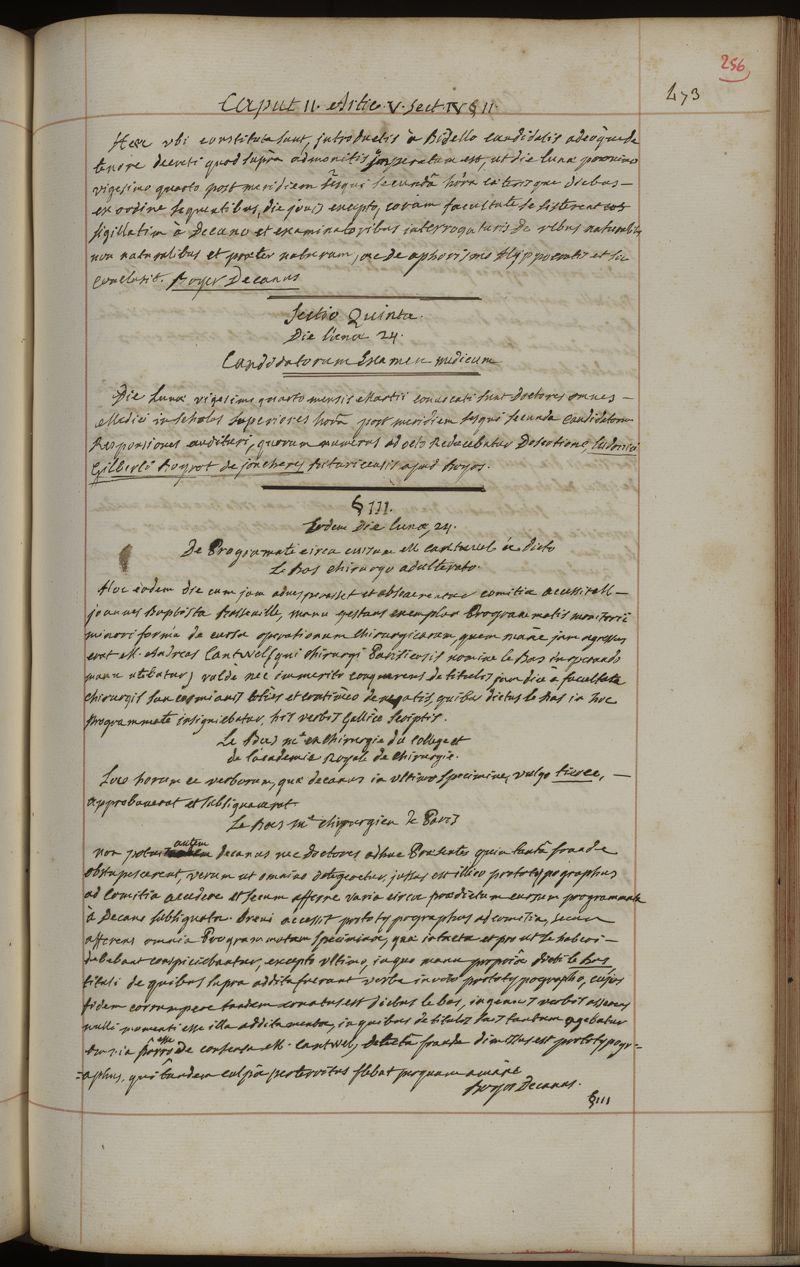 256
273
Caput II. Artic. V. Sect. IV § II.
Hæc ubi constituta sunt, introductis à Bidello candidatis adeóque de
tenore decreti quod suprà admonitis imperatum est, ut die lunæ proximo
vigesimo quarto post meridiem sesqui secundâ horâ cæterisque diebus
ex ordine sequentibus, die jovis excepto, coram facultate se sisterent
sigillatim à Decano et examinatoribus interrogaturis de rebus naturalibus
non naturalibus et præter naturam, ac de aphorismo Hyppocratis et sic
conclusit. Boyer Decanus
Sectio Quinta.
Die lunæ 24.
Candidatorum Examen medicum
Die Lunæ vigesimo quarto mensis Martii convocati sunt doctores omnes
Medici in scholas superiores horâ post meridiem sesqui secunda Candidatorum
Responsiones audituri, quorum numerus ad octo Reducebatur Desertione Ludovici
Gilberti Boyrot de joncheres Bituricensis apud Boyos.
§ III.
Eodem Die lunæ, 24.
De Programate circa cursum M. Cantwel à dicto
Le Bas chirurgo adulterato.
Hoc eodem die cum jam advesperasset et absolverentur comitia accessit M.
joannes Baptista Basseville, manu gestans exemplar Programmatis monitorii
minori forma de cursu operationum chirurgicarum, quem mane jam agressus
erat M. Andreas Cantwel (qui chirurgi Parisiensis nomine le Bas in operando
manu utebatur) valde nec immerito conquerens de titulis jam diu à facultate
chirurgis san cosmianis toties et continuo denegatis, quibus dictus le Bas in hoc
programmate insigniebatur, his verbis Gallicè scriptis.
Le Bas me en chirurgie du college et
de l'academie Royale de chirurgie.
Loco horum ce verborum, quæ decanus in ultimo specimine, vulgo tierce,
approbaverat et subsignaverat
Le Bas me chirurgien de Paris
non potuit autem decanus nec doctores adhuc Præsentes quin tantâ fraude
obstupescerent, verum ut omnino detegeretur, jussus est illico prototypographus
ad comitia accedere et secum afferre varia circa prædictum cursum programmata
à Decano subsignata. Brevi accessit prototypographus ad comitia, secum
afferens omnia Programmatum specimina, quæ intacta et prout se haberi
debebant conspiciebantur, excepto ultimo, in quo manu propriâ dicti le Bas
tituli de quibus supra additi fuerant verba invito prototypographo, cujus
fidem corrumpere tandem conatus est dictus le bas, ingenuis verbis asserens
nulli momenti esse illa additamenta, in quibus de titulis suis tantum agebatur
de consensu M. Cantwel, detectâ fraude dimissus est prototypogr=
=aphus, qui tandem culpâ flebat perquam amarè
Boyer Decanus.
§ III